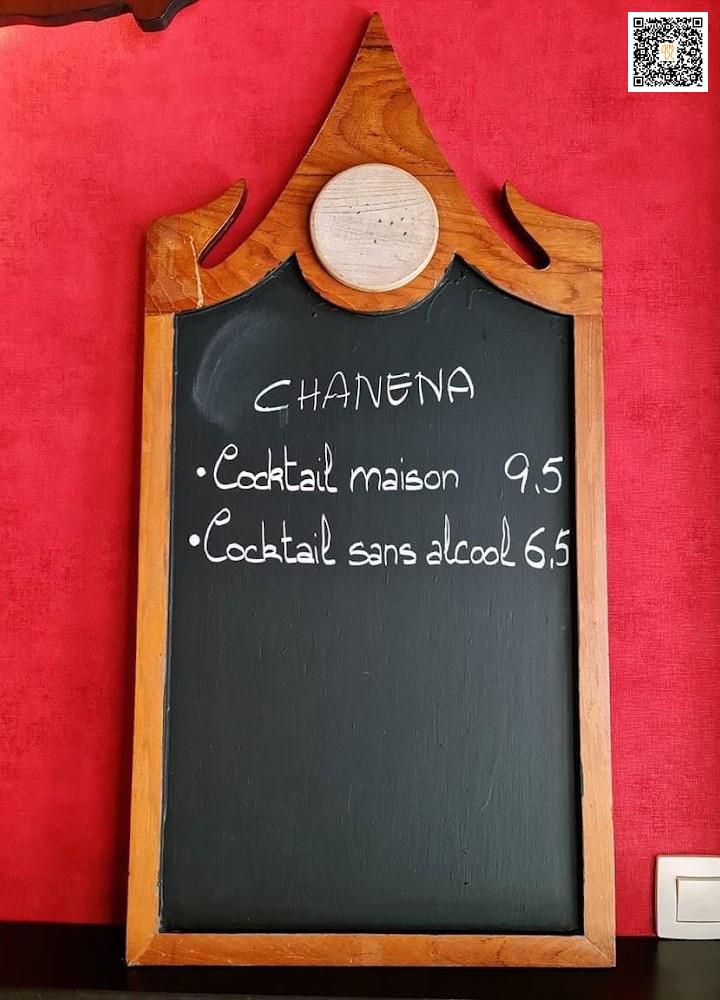 CHANENA
• Cocktail maison 9,5
• Cocktail sans alcool 6,5